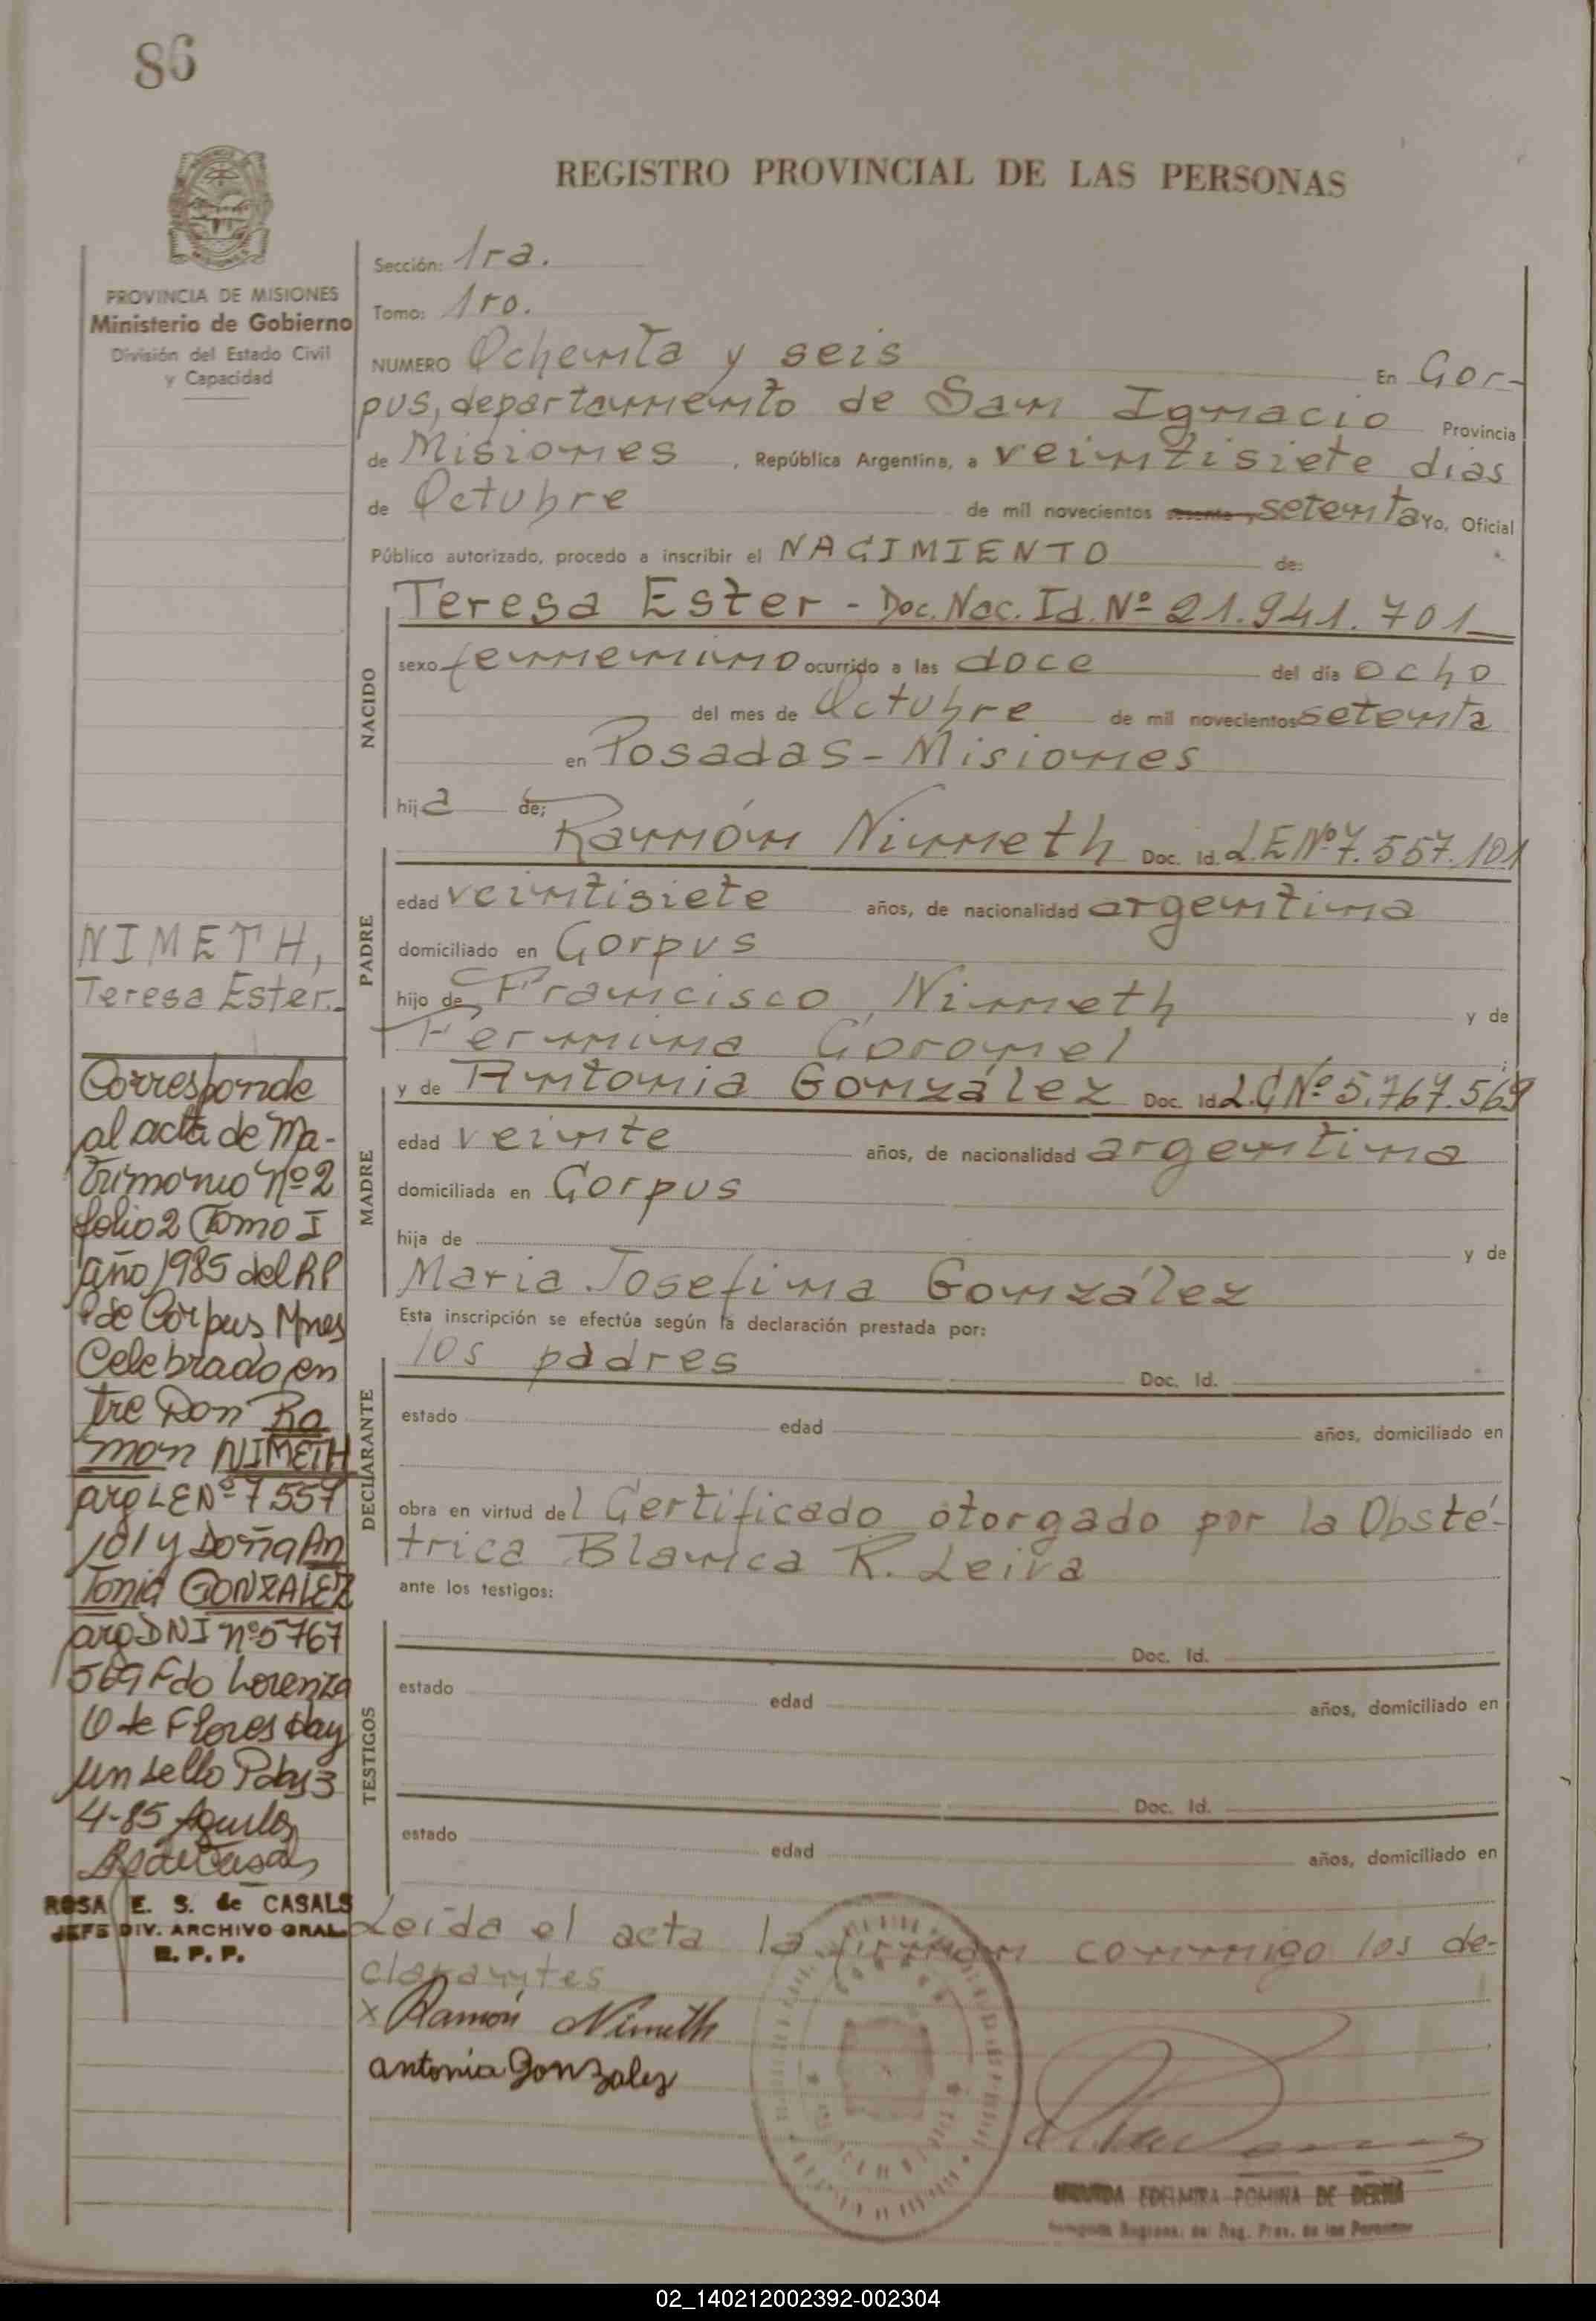 86
REGISTRO PROVINCIAL DE LAS PERSONAS
PROVINCIA DE MISIONES
Ministerio de Gobierno
División del Estado Civil
y Capacidad
Sección: 1ra.
Tomo: 1ro.
NUMERO Ochenta y seis En Cor-
pus, departamento de San Ignacio Provincia
de Misiones, República Argentina, a veintisiete dias
de Octubre de mil novecientos sesenta, setenta Yo, Oficial
Público autorizado, procedo a inscribir el NACIMIENTO de:
NACIDO
Teresa Ester - Doc. Nac. Id. Nº 21.941.701
sexo femenino ocurrido a las doce del día ocho
del mes de Octubre de mil novecientos setenta
en Posadas - Misiones
hija de;
PADRE
Ramón Nimeth Doc. Id. L.E Nº 7.557.101
edad veintisiete años, de nacionalidad argentina
domiciliado en Corpus
hijo de Francisco Nimeth y de
Fermina Coronel
MADRE
y de Antonia González Doc. Id. L.C Nº 5.767.569
edad veinte años, de nacionalidad argentina
domiciliada en Corpus
hija de y de
Maria Josefina González
Esta inscripción se efectúa según la declaración prestada por:
DECLARANTE
los padres Doc. Id.
estado edad años, domiciliado en
obra en virtud del Certificado otorgado por la Obsté-
trica Blanca R. Leiva
ante los testigos:
TESTIGOS
Doc. Id.
estado edad años, domiciliado en
Doc. Id.
estado edad años, domiciliado en
Leída el acta la firman conmigo los de-
clarantes
x Ramón Nimeth
antonia Gonzalez
EDELMIRA ROMINA DE
NIMETH,
Teresa Ester.
Corresponde
al acta de Ma-
trimonio nº 2
folio 2 Tomo I
año 1985 del RP
P de Corpus Mnes
Celebrado en
tre Don Ra
mon NIMETH
arg LE Nº 7557
101 y Doña An
tonia GONZALEZ
arg DNI nº 5767
569 Fdo Lorenza
O de Flores Hay
un sello Pdas 3
4-85 Aguilar
ROSA E. S. de CASALS
JEFE DIV. ARCHIVO GRAL.
R. P. P.
02_140212002392-002304